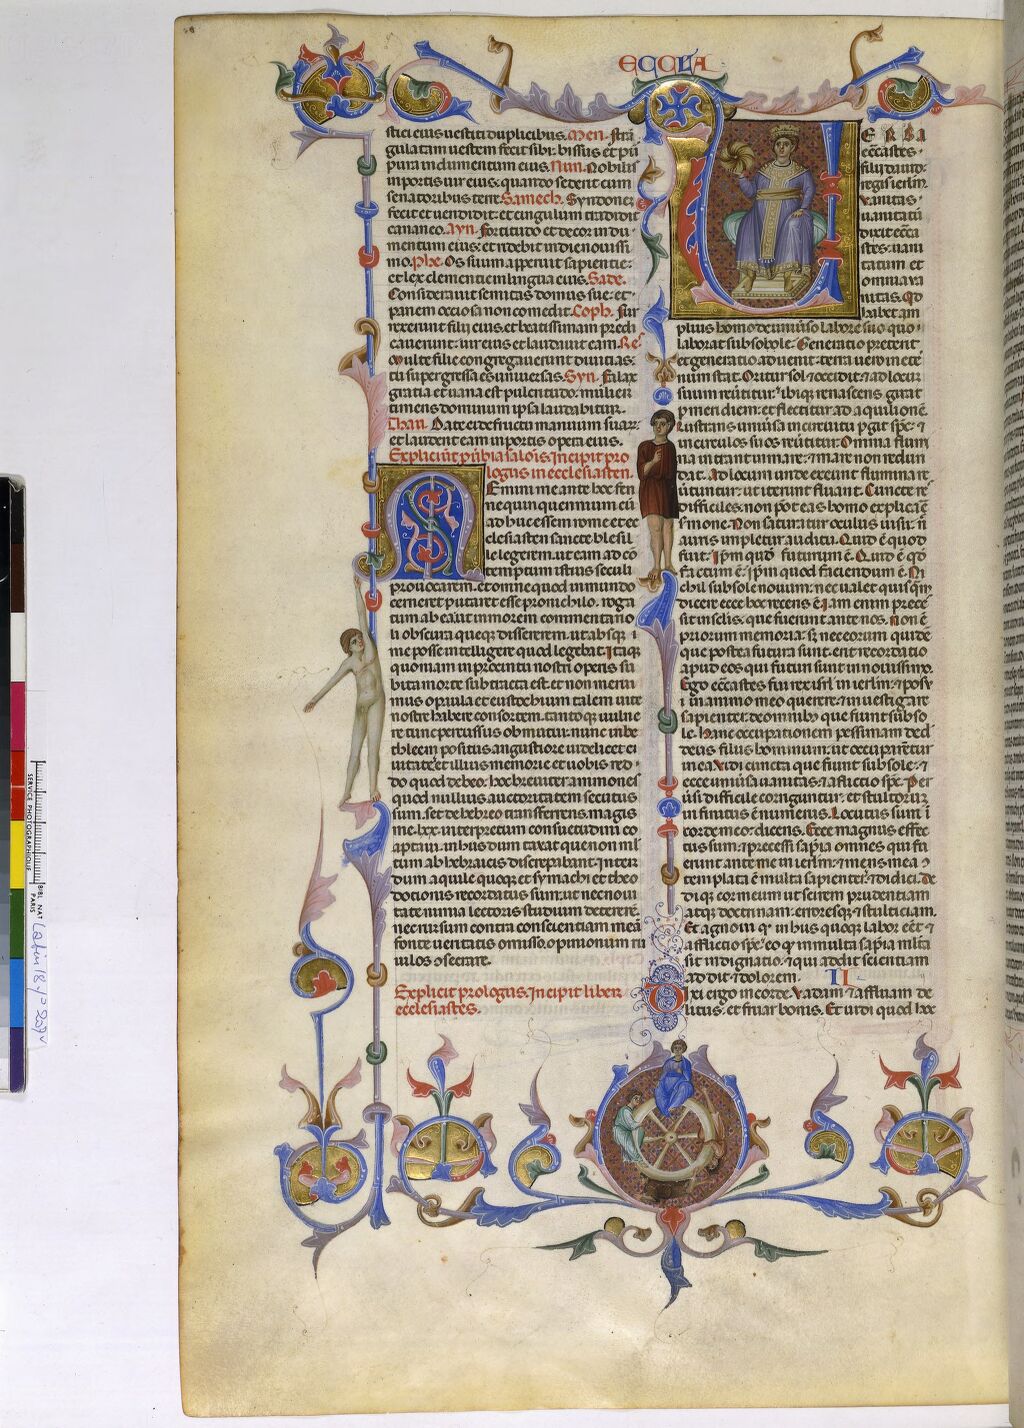 ECCLA
stici eius uestiti duplicibus. Men. stra
gulatam uestem fecit sibi. bissus et pur
pura indumentum eius. Nun. Nobilis
in portis uir eius. quando sederit cum
senatoribus terre. Samech. Syndonem
fecit et uendidit. et cingulum tradidit
cananeo. Ayn. fortitudo et decor indu
mentum eius. et ridebit in die nouissi
mo. Phe. Os suum apperuit sapientie.
et lex clementie in lingua eius. Sade.
Considerauit semitas domus sue. et
panem occiosa non comedit. Coph. Sur
rexerunt filii eius. et beatissimam predi
cauerunt. uir eius et laudauit eam. Res
Multe filie congregauerunt diuitias.
tu supergressa es uniuersas. Syn. Falax
gratia et uana est pulcritudo. mulier
timens dominum ipsa laudabitur.
Thau. Date ei de fructu manuum suar.
et laudent eam in portis opera eius.
Incipit pro
logus in ecclesiasten.
Emini me ante hoc fer
me quinquennium cu
adhuc essem rome et ec
clesiasten sancte blesil
le legerem. ut eam ad co
temptum istius seculi
prouocarem. et omne quod in mundo
cerneret putaret esse pro nichilo. roga
tum ab ea ut in morem commentario
li obscura queque dissererem. ut absque
me posse intelligere quod legebat. Itaque
quoniam in procinctu nostri operis su
bita morte subtracta est. et non merui
mus o paula et eustochium talem uite
nostre habere consortem. tantoque uulne
re tunc percussus obmutui. nunc in be
thleem positus angustiore uidelicet ci
uitate. et illius memorie et uobis red
do quod debeo. hoc breuiter ammones
quod nullius auctoritatem secutus
sum. set de hebreo transferens. magis
me .lxx. interpretum consuetudini co
aptaui. in his dum taxat que non mul
tum ab hebraicis discrepabant. inter
dum aquile quoque et symachi et theo
dotionis recordatus sum. ut nec noui
tate nimia lectoris studium deterere.
nec rursum contra conscientiam mea
fonte ueritatis omisso. opinionum ri
uulos consectare.
Explicit prologus. Incipit liber
ecclesiastes.
ERBA
ecclastes.
filii dauid.
regis ierlm.
Vanitas
uanitatu
dixit eccla
stes. uani
tatum et
omnia ua
nitas. Qd
habet am
plius homo de uniuso labore suo quo
laborat sub sole. Generatio preterit
et generatio aduenit. terra uero in ete
num stat. Oritur sol et occidit. et ad locum
suum reuertitur. ibique renascens girat
p meridiem. et flectitur ad aquilonem.
Lustrans uniusa in circuitu pgit sps. et
in circulos suos reuertitur. Omnia flumi
na intrant in mare. et mare non redun
dat. Ad locum unde exeunt flumina re
uertuntur. ut iterum fluant. Cuncte res
difficiles. non pot eas homo explicare
sermone. Non saturatur oculus uisu. n
auris impletur auditu. Quid e quod
fuit. Ipm quod futurum e. Quid e qd
factum e. Ipm quod faciendum e. Ni
chil sub sole nouum. nec ualet quisqm
dicere ecce hoc recens e. Iam enim prece
sit in selis. que fuerunt ante nos. Non e
priorum memoria. sz nec eorum quidem
que postea futura sunt. erit recordatio
apud eos qui futuri sunt in nouissimo.
Ego eccastes fui rex isrl in ierlm. et posu
i in animo meo querere. et inuestigare
sapienter. de omnibus que fiunt sub so
le. Hanc occupationem pessimam dedit
deus filiis hominum. ut occuparentur
in ea. Vidi cuncta que fiunt sub sole. et
ecce uniusa uanitas. et afflictio sps. Per
uersi difficile corriguntur. et stultorum
infinitus e numerus. Locutus sum i
corde meo. dicens. Ecce magnus effec
tus sum. et precessi sapia omnes qui fu
erunt ante me in ierlm. et mens mea con
templata e multa sapienter. et didici. De
dique cor meum ut scirem prudentiam
atque doctrinam. erroresque et stulticiam.
Et agnoui qd in his quoque labor eet et
afflictio sps. eo qd in multa sapia multa
sit indignatio. et qui addit scientiam
addit et dolorem. II
Dixi ego in corde. Vadam et affluam de
litiis. et fruar bonis. Et uidi quod hoc
SERVICE PHOTOGRAPHIQUE
BIBL. NAT
PARIS
Latin 18